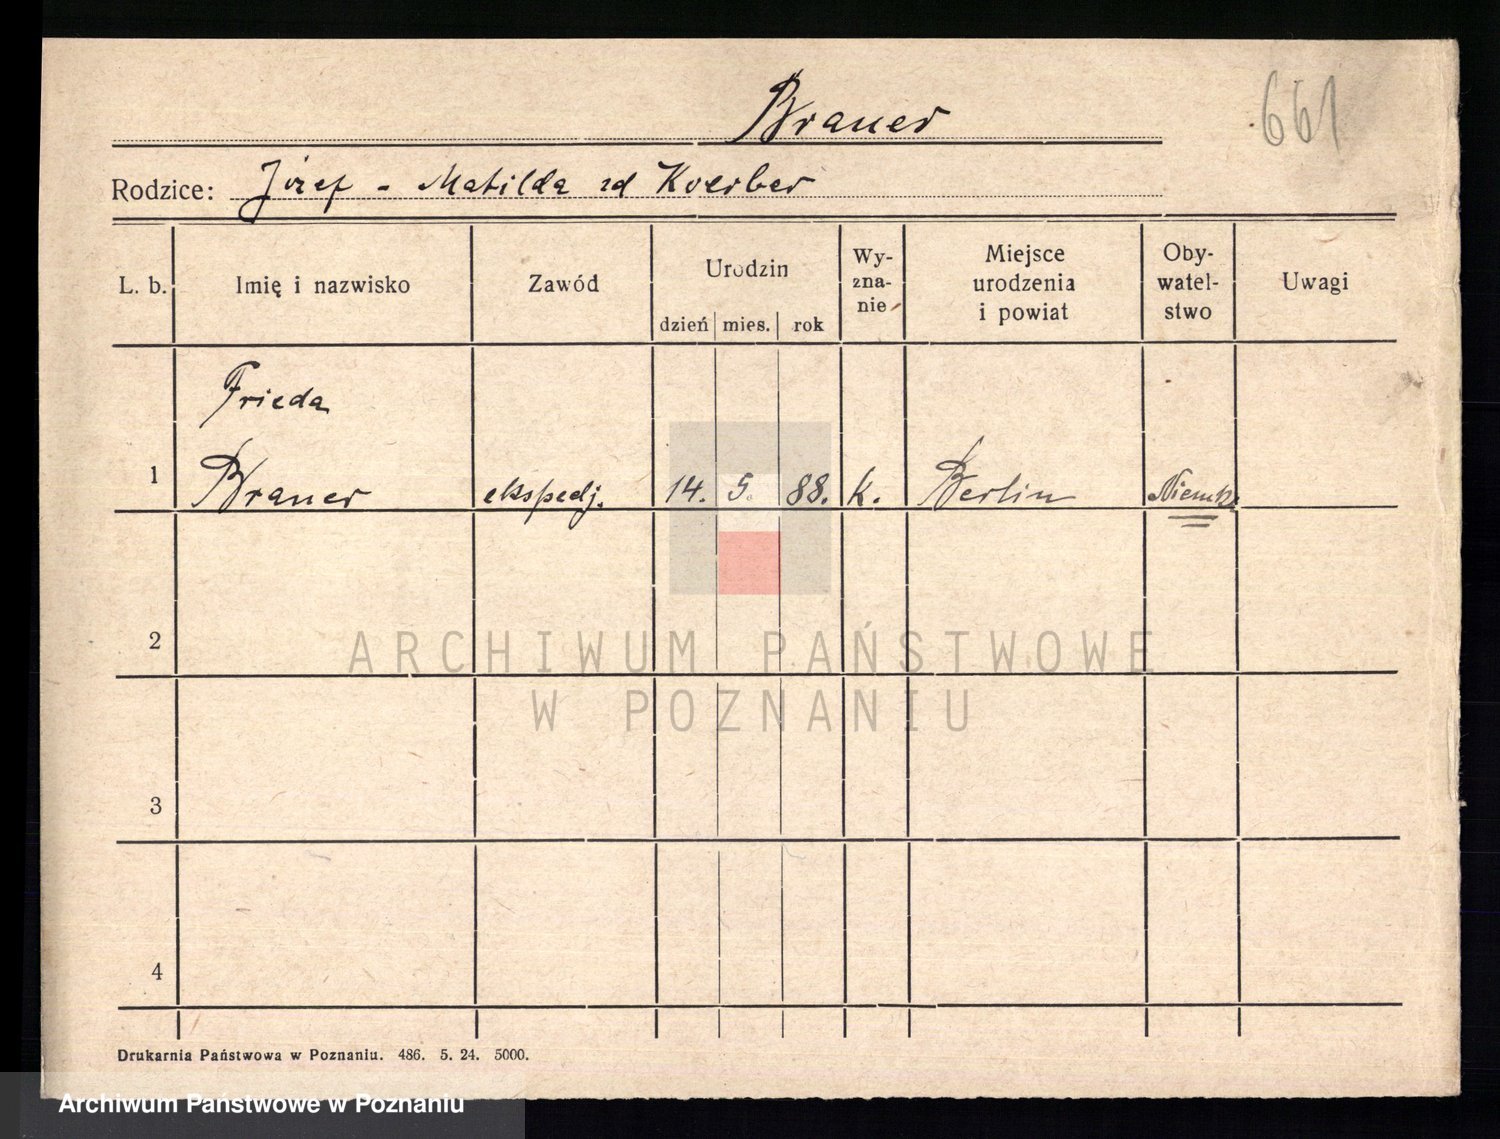 Brauer
661
Rodzice: Józef - Matilda zd Koerber
L. b. Imię i nazwisko Zawód Urodzin dzień mies. rok Wy-zna-nie Miejsce urodzenia i powiat Oby-watel-stwo Uwagi
Frieda
1 Brauer ekspedj. 14. 5. 88. k. Berlin
2
3
4
ARCHIWUM PAŃSTWOWE
W POZNANIU
Drukarnia Państwowa w Poznaniu. 486. 5. 24. 5000.
Archiwum Państwowe w Poznaniu